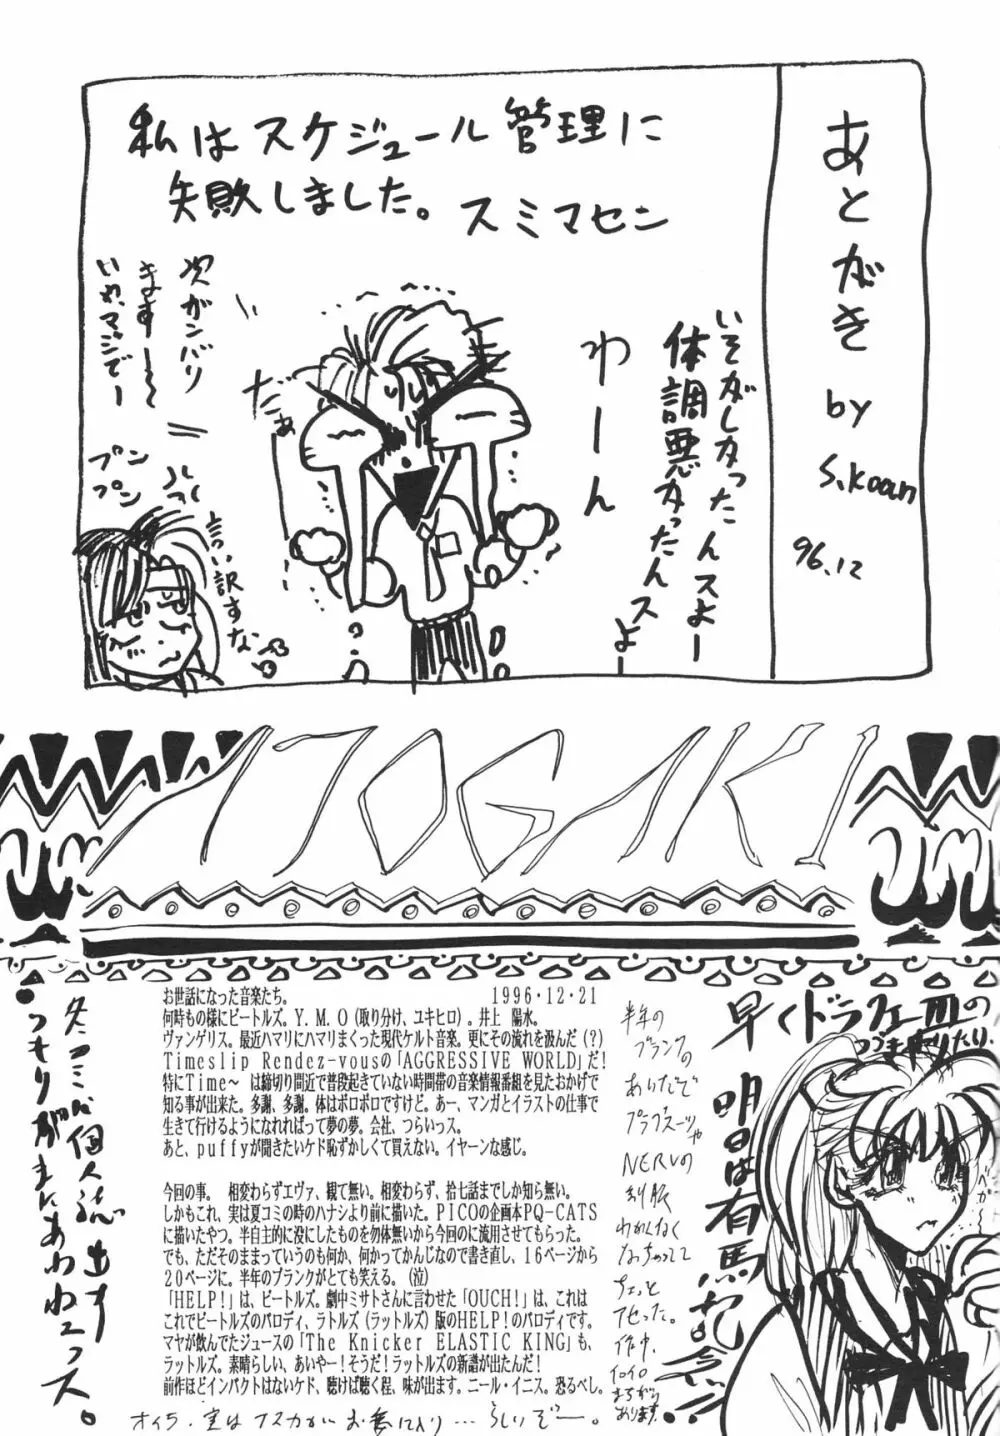 あとがき
by
S.Koan
96.12
私はスケジュール管理に
失敗しました。スミマセン
いそがしかったんスよー
体調悪かったんスよー
わーん
だぁ
次ガンバリ
ます〜〜
いわ、マジでー
プン
プン
言い訳すな
ATOGAKI
早くドラクエⅢの
つづきやりたい。
明日は有馬記念!!
お世話になった音楽たち。　1996・12・21
何時もの様にビートルズ。Y.M.O（取り分け、ユキヒロ）。井上 陽水。
ヴァンゲリス。最近ハマリにハマリまくった現代ケルト音楽。更にその流れを汲んだ（？）
Timeslip Rendez-vousの「AGGRESSIVE WORLD」だ！
特にTime～ は締切り間近で普段起きていない時間帯の音楽情報番組を見たおかげで
知る事が出来た。多謝、多謝。体はボロボロですけど。あー、マンガとイラストの仕事で
生きて行けるようになれればって夢の夢。会社、つらいっス。
あと、puffyが聞きたいケド恥ずかしくて買えない。イヤーンな感じ。
今回の事。 相変わらずエヴァ、観て無い。相変わらず、拾七話までしか知ら無い。
しかもこれ、実は夏コミの時のハナシより前に描いた。PICOの企画本PQ-CATS
に描いたやつ。半自主的に没にしたものを勿体無いから今回のに流用させてもらった。
でも、ただそのままっていうのも何か、何かってかんじなので書き直し、16ページから
20ページに。半年のブランクがとても笑える。（泣）
「HELP！」は、ビートルズ。劇中ミサトさんに言わせた「OUCH！」は、これは
これでビートルズのパロディ、ラトルズ（ラットルズ）版のHELP！のパロディです。
マヤが飲んでたジュースの「The Knicker ELASTIC KING」も、
ラットルズ。素晴らしい、あいやー！そうだ！ラットルズの新譜が出たんだ！
前作ほどインパクトはないケド、聴けば聴く程、味が出ます。ニール・イニス。恐るべし。
半年の
ブランクの
あいだで
プラグスーツや
NERVの
制服
わかんなく
なっちゃってて
ちょっと
アセった。
作中、
イロイロ
まちがって
おります。
冬コミで個人誌出す
つもりが、まにあわねっス。
オイラ、実はアスカがお気に入り…らしいぞー。